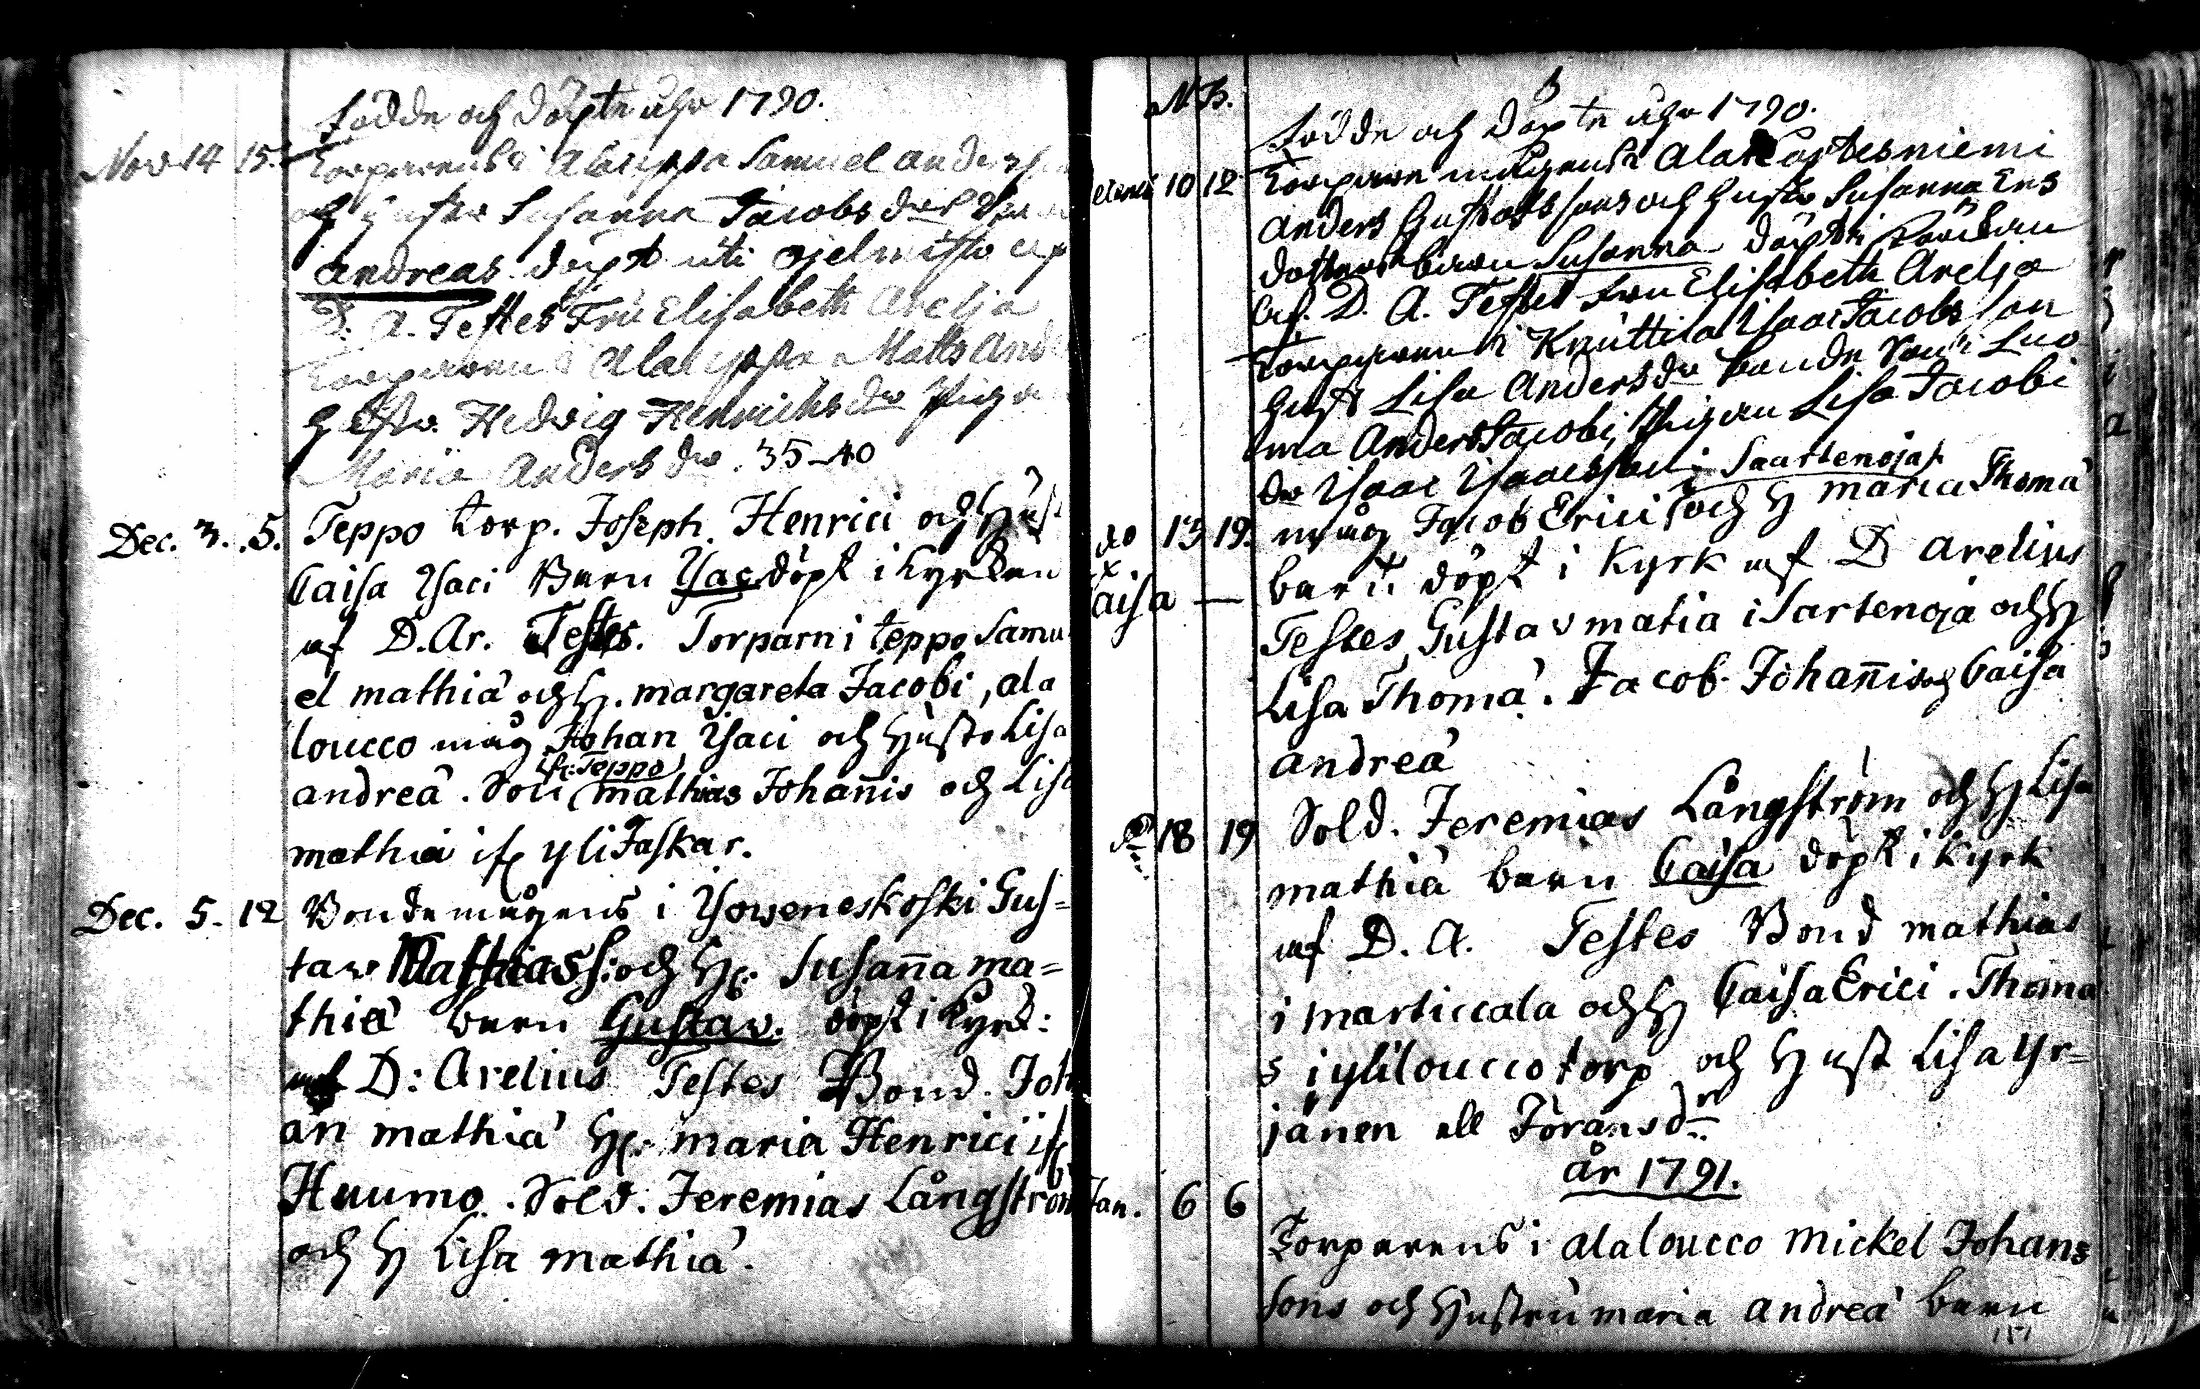 födde och döpte åhr 1790.
Nov 14 15. Torparens i Alaseppä Samuel Anders
och hustr Susanna Jacobs dotr
Andreas döpt uti
D. A. Testes Fru Elisabeth Arelja
Torparen Matts And
hustr. Hedvig Henrichs dr Pig
Maria Anders dr. 35-40
Dec. 3. 5. Teppo torp. Joseph Henrici och Hust
Caisa Ysaci Barn Ysac döpt i kyrkan
af D. Ar. Testes. Torparn i teppo Samu
el mathiä och H. margareta Jacobi, ala
loucco måg Johan Ysaci och Hustr Lisa
fr: Teppo
andreä. Son mathias Johañis och Lisa
mathiä if yli Jaskar.
Dec. 5. 12 Bonde mågens i Yoweneskoski Gus=
taw Mathias S: och H: Susaña ma=
thiä barn Gustav. döpt i Kyrk:
af D: Arelius Testes Bond. Joh
an mathiä H: maria Henrici if
Huumo. Sold. Jeremias Långström
och H Lisa mathiä.
N B.
födde och döpte åhr 1790.
10 12 Torpare mågens i
Anders Gustafssons och hustr Susanna Ers
dotters barn Susanna döpt i kÿrkan
af. D. A. Testes Fru Elisabeth Arelja
Torparen i Knuttila Ysac Jacobs son
hust Lisa Anders dr bonde Son i Luo
ma Anders Jacobi, Pigan Lisa Jacobi
dr Ysac Ysacsson i Saartenoja
do 13 19. måg Jacob Erici och H maria Thomä
x
Caisa — barn döpt i Kyrk af D Arelius
Testes Gustav matiä i Sartenoja och H
Lisa Thomä. Jacob Johañis och Caisa
andreä
18 19 Sold. Jeremias Långström och H Lisa
mathiä barn Caisa döpt i Kyrk
af D. A. Testes Bond mathias
i marticcala och H Caisa Erici. Thoma
s i yliloucco torp och Hust Lisa Yr=
jänen ell Jöransdr
år 1791.
Jan. 6 6
Torparens i alaloucco Mickel Johans
sons och Hustru maria andreä barn